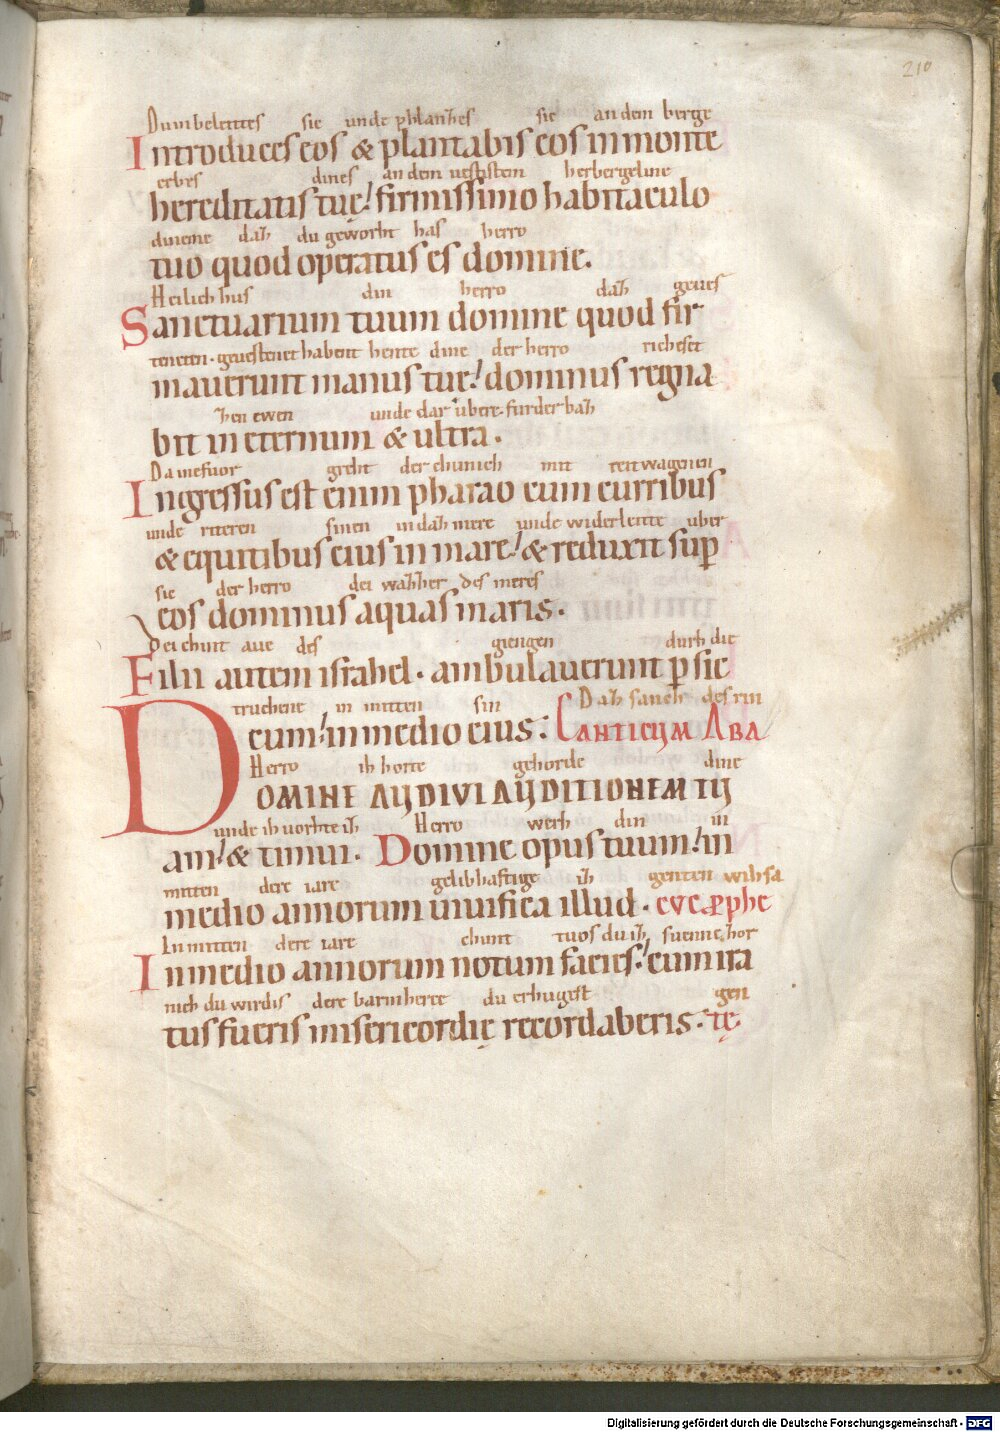 210
Duinbeleittes sie unde phlanʒhes sie an dem berge
Introduces eos & plantabis eos in monte
erbes dines an dem vestistem herbergeline
hereditatis tuę! firmissimo habitaculo
duieme daʒh du geworht has herro
tuo quod operatus es domine.
Heilich hus din herro daʒh geves
Sanctuarium tuum domine quod fir
teneten. gevestenet habent hente dine der herro richeset
maverunt manus tuę! dominus regna
ʒhen ewen unde dar ubere. furder baʒh
bit in eternum & ultra.
Da inefuor greht der chunich mit reitwagenen
Ingressus est enim pharao cum curribus
unde riteren sinen in daʒh mere unde widerleitte uber
& equitibus eius in mare! & reduxit sup
sie der herro dei waʒhʒher des meres
eos dominus aquas maris.
Dei chint ave des giengen durh die
Filii autem israhel. ambulaverunt p sic
truchent in mitten sin Daʒh sanch des riu
cum! in medio eius: CANTICUM ABA
Herro ih horte gehorde dine
DOMINE AUDIVI AUDITIONEM TU
unde ih vorhte ih Herro werh din in
am! & timui. Domine opus tuum! in
mitten dere iare gelibhaftige iʒh genten wihsa
medio annorum vivifica illud. eve æphe
In mitten dere iare chunt tuos du iʒh suenne .hor
In medio annorum notum facies! cum ira
nich du wirdis dere barmherce du erhugest gen
tus fueris misericordię recordaberis. tę.
Digitalisierung gefördert durch die Deutsche Forschungsgemeinschaft - DFG